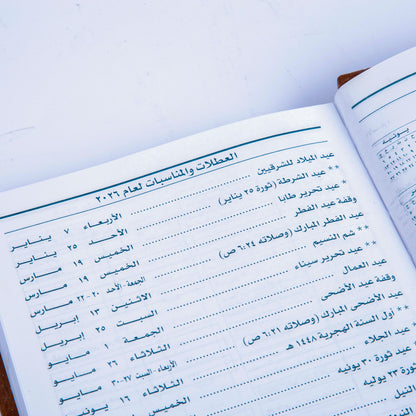 العطلات والمناسبات لعام ٢٠٢٦
عيد الميلاد للشرقيين الأربعاء ٧ يناير
** عيد الشرطة (ثورة ٢٥ يناير) الأحد ٢٥ يناير
عيد تحرير طابا الخميس ١٩ مارس
وقفة عيد الفطر الخميس ١٩ مارس
** عيد الفطر المبارك (وصلاته ٦:٢٤ ص) الجمعة - الأحد ٢٠-٢٢ مارس
شم النسيم الاثنين ١٣ إبريل
** عيد تحرير سيناء السبت ٢٥ إبريل
عيد العمال الجمعة ١ مايو
وقفة عيد الأضحى الثلاثاء ٢٦ مايو
عيد الأضحى المبارك (وصلاته ٦:٢١ ص) الأربعاء - السبت ٢٧-٣٠ مايو
** أول السنة الهجرية ١٤٤٨ هـ الثلاثاء ١٦ يونيه
عيد الجلاء الخميس
عيد ثورة ٣٠ يونيه
ثورة ٢٣ يوليه
النيل